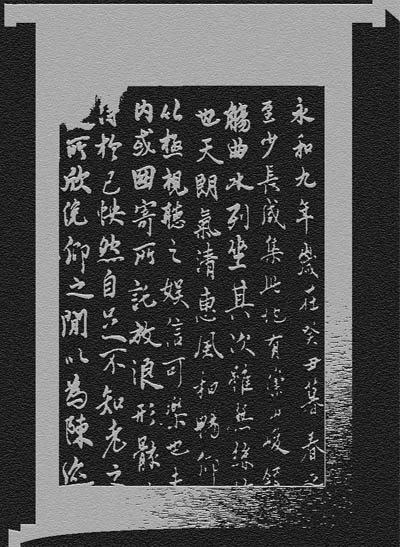 永和九年歲在癸丑暮春之
至少長咸集此地有崇山峻領
觴曲水列坐其次雖無絲
世天朗氣清惠風和暢仰
以極視聽之娛信可樂也夫
內或因寄所託放浪形骸
於己怏然自足不知老之
所欣俛仰之閒以為陳迹